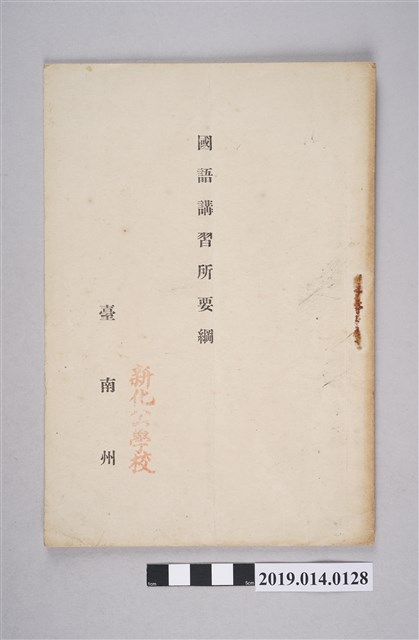 國語講習所要綱
臺南州
新化公學校
5cm
5cm
2019.014.0128